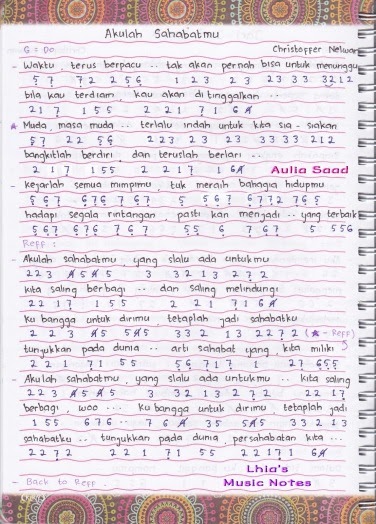 Akulah Sahabatmu
G = Do
Christoffer Nelwan
- Waktu, terus berpacu .. tak akan pernah bisa untuk menunggu
5 7 7 2 2 5 6 1 2 3 2 3 2 3 3 3 3212
bila kau terdiam, kau akan ditinggalkan ..
2 1 7 1 5 5 2 2 1 7 1 6
Muda, masa muda .. terlalu indah untuk kita sia - siakan
5 7 2 2 5 6 2 2 3 2 3 2 3 3 3 3 3 2 1 2
bangkitlah berdiri, dan teruslah berlari ..
2 1 7 1 5 5 2 2 1 7 1 6
Aulia Saad
- Kejarlah semua mimpimu, tuk meraih bahagia hidupmu
5 6 7 6 7 6 7 6 7 5 5 6 7 6 7 7 2 7 6 5
hadapi segala rintangan, pasti kan menjadi .. yang terbaik
5 6 7 6 7 6 7 6 7 5 5 6 7 6 7 5 5 5 6
Reff :
- Akulah sahabatmu, yang slalu ada untukmu
2 2 3 5 5 3 3 2 1 3 2 7 2
kita saling berbagi .. dan saling melindungi
2 2 1 7 1 5 5 2 2 1 7 1 6
Ku bangga untuk dirimu, tetaplah jadi sahabatku
2 2 3 5 5 5 3 3 2 1 3 2 2 7 2 ( - Reff)
tunjukkan pada dunia .. arti sahabat yang kita miliki
2 2 1 7 1 5 5 5 6 7 1 7 1 2 7 6 5 5
- Akulah sahabatmu, yang slalu ada untukmu .. kita saling
2 2 3 5 5 3 3 2 1 3 2 7 2 2 2 1 7
berbagi, woo ... Ku bangga untuk dirimu, tetaplah jadi
1 5 5 6 7 6 .. 7 6 3 5 5 5 3 3 2 1 3
sahabatku .. tunjukkan pada dunia, persahabatan kita ...
2 2 7 2 2 2 1 7 1 5 5 2 2 1 7 1 6
- Back to Reff .
Lhia's
Music Notes